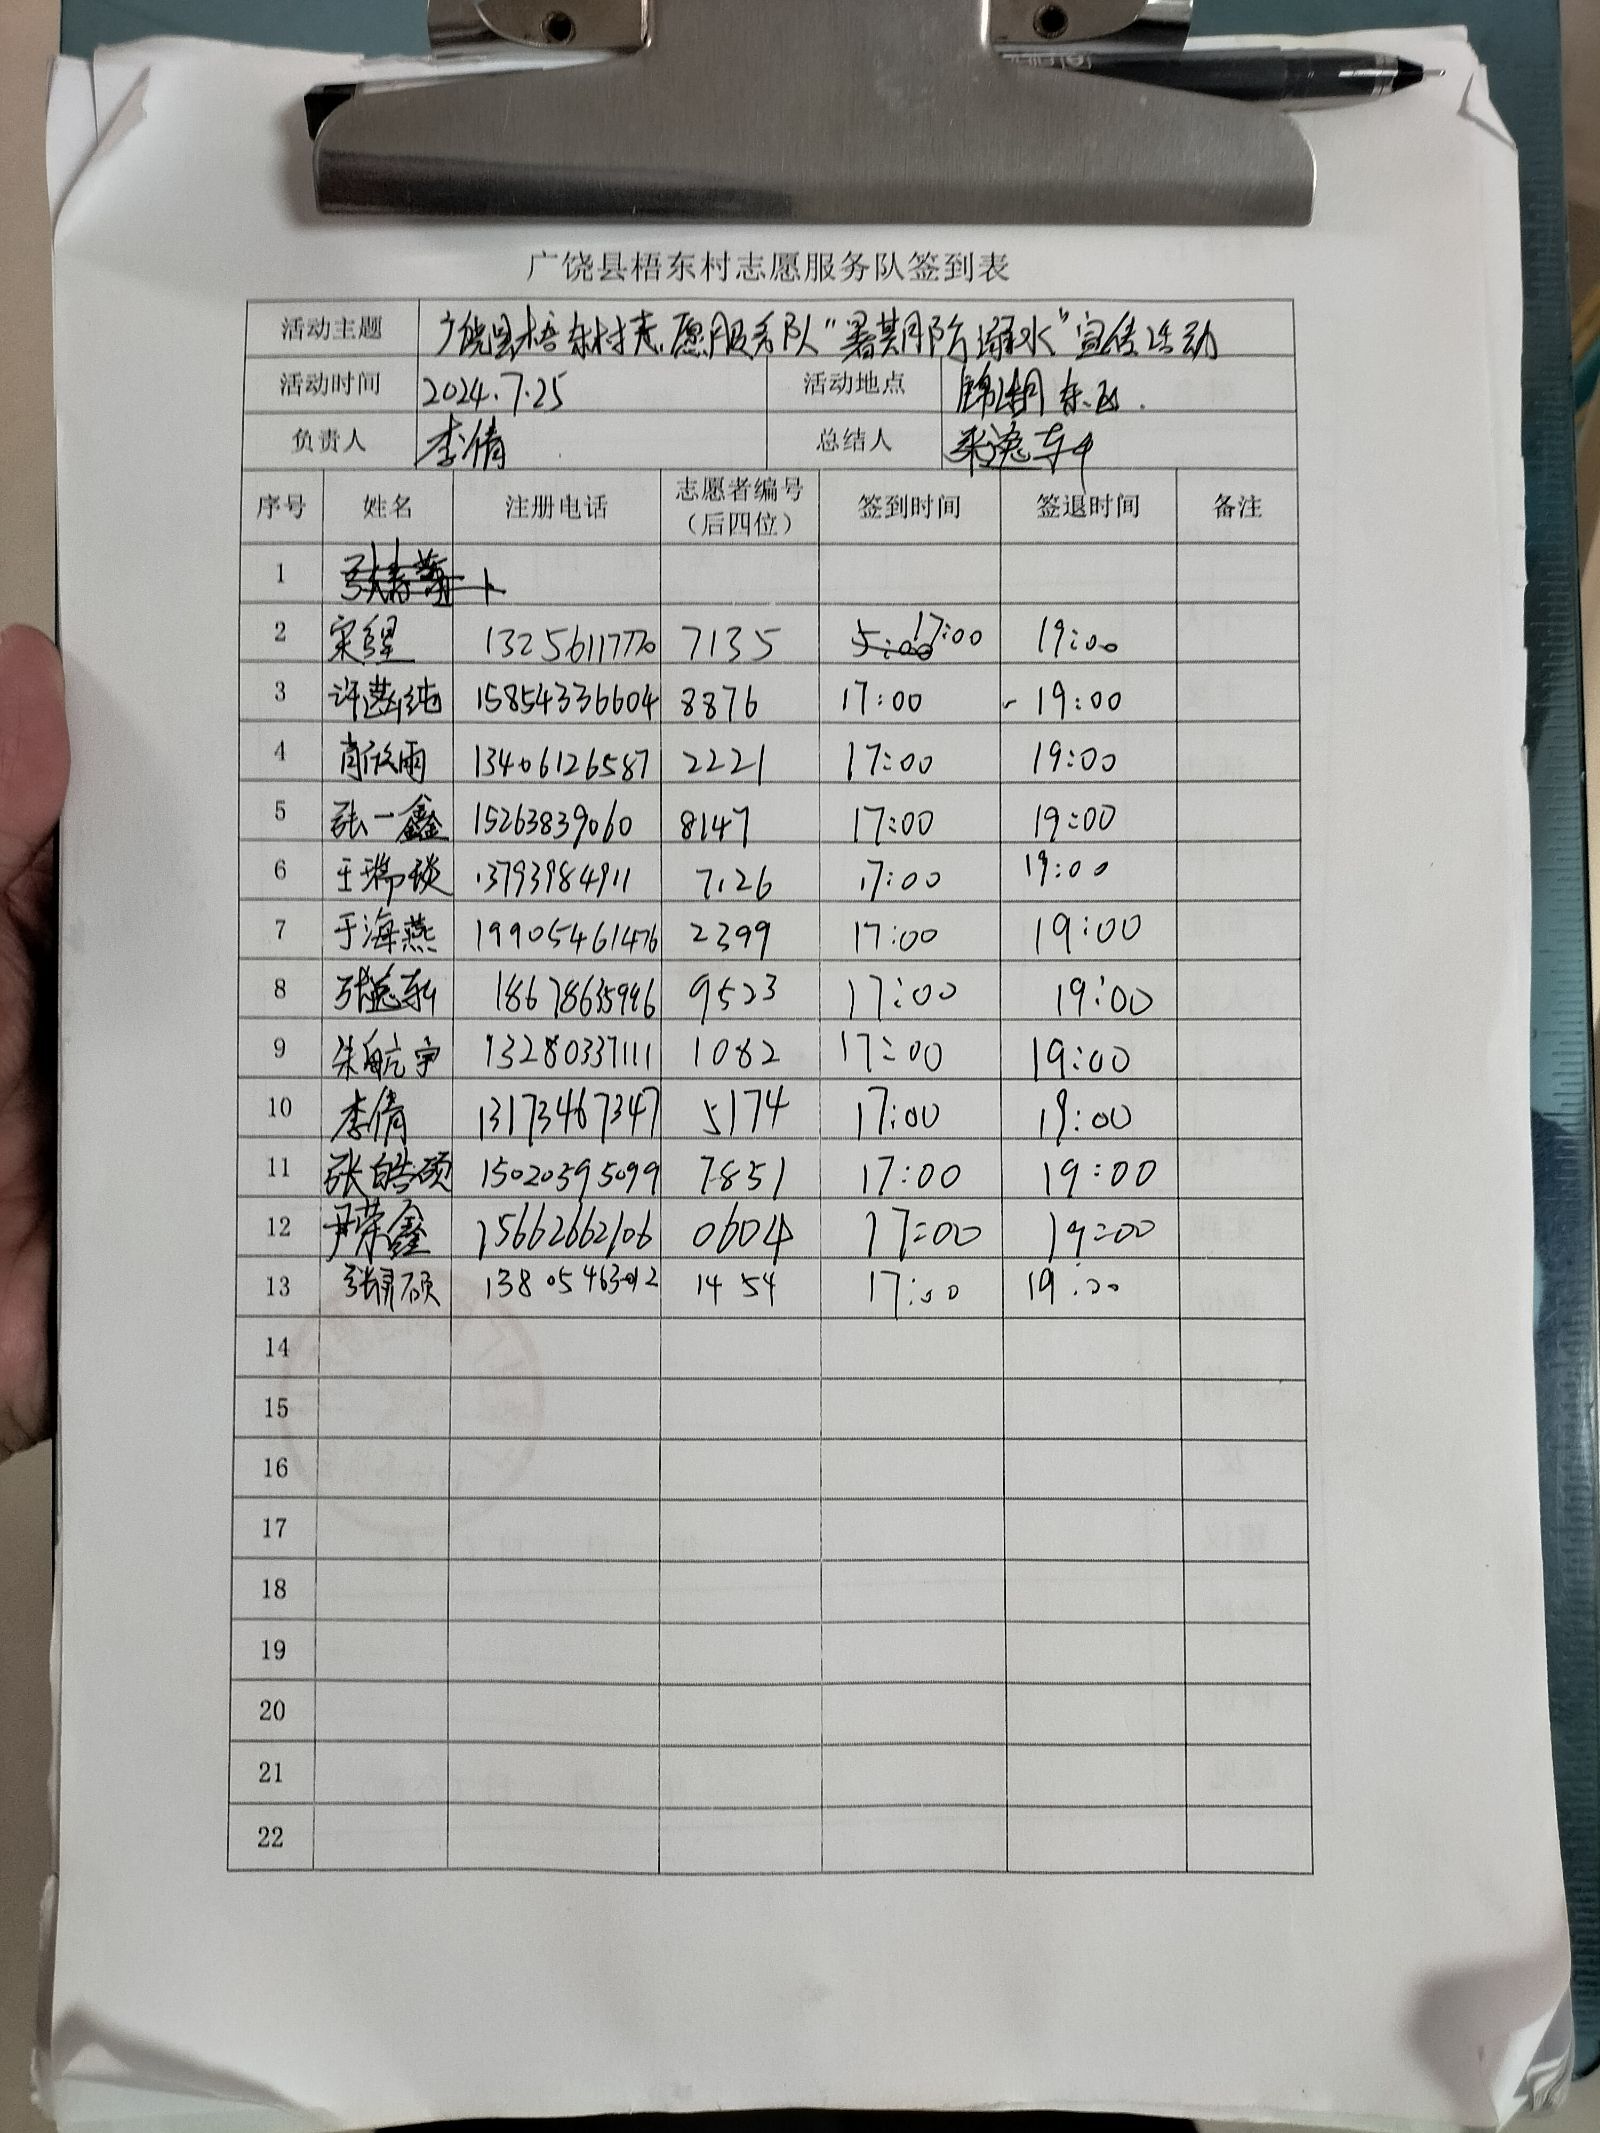 广饶县梧东村志愿服务队签到表
活动主题 广饶县梧东村志愿服务队“暑期防溺水”宣传活动
活动时间 2024.7.25 活动地点 锦湖东区.
负责人 李倩 总结人
序号 姓名 注册电话 志愿者编号（后四位） 签到时间 签退时间 备注
1
2 13256117770 7135 5:00 17:00 19:00
3 15854336604 8876 17:00 - 19:00
4 肖欣雨 13406126587 2221 17:00 19:00
5 张一鑫 15263839060 8147 17:00 19:00
6 王瑞琰 13793984911 7126 17:00 19:00
7 于海燕 19905461476 2399 17:00 19:00
8 张逸轩 18678635996 9523 17:00 19:00
9 朱航宇 13280337111 1082 17:00 19:00
10 李倩 13173467347 5174 17:00 19:00
11 张皓硕 15020595099 7851 17:00 19:00
12 尹荣鑫 15662662106 0604 17:00 19:00
13 13805463012 1454 17:00 19:00
14
15
16
17
18
19
20
21
22